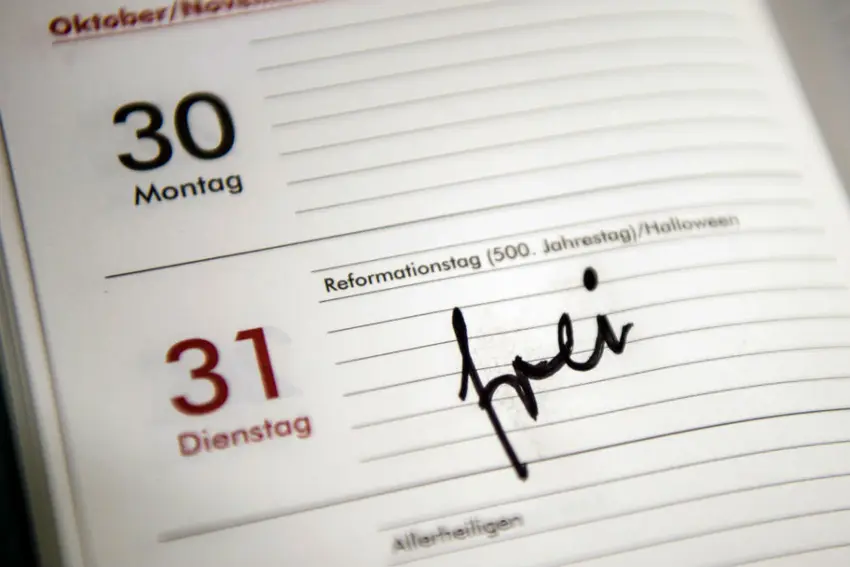 Oktober/November
30
Montag
Reformationstag (500. Jahrestag)/Halloween
frei
31
Dienstag
Allerheiligen